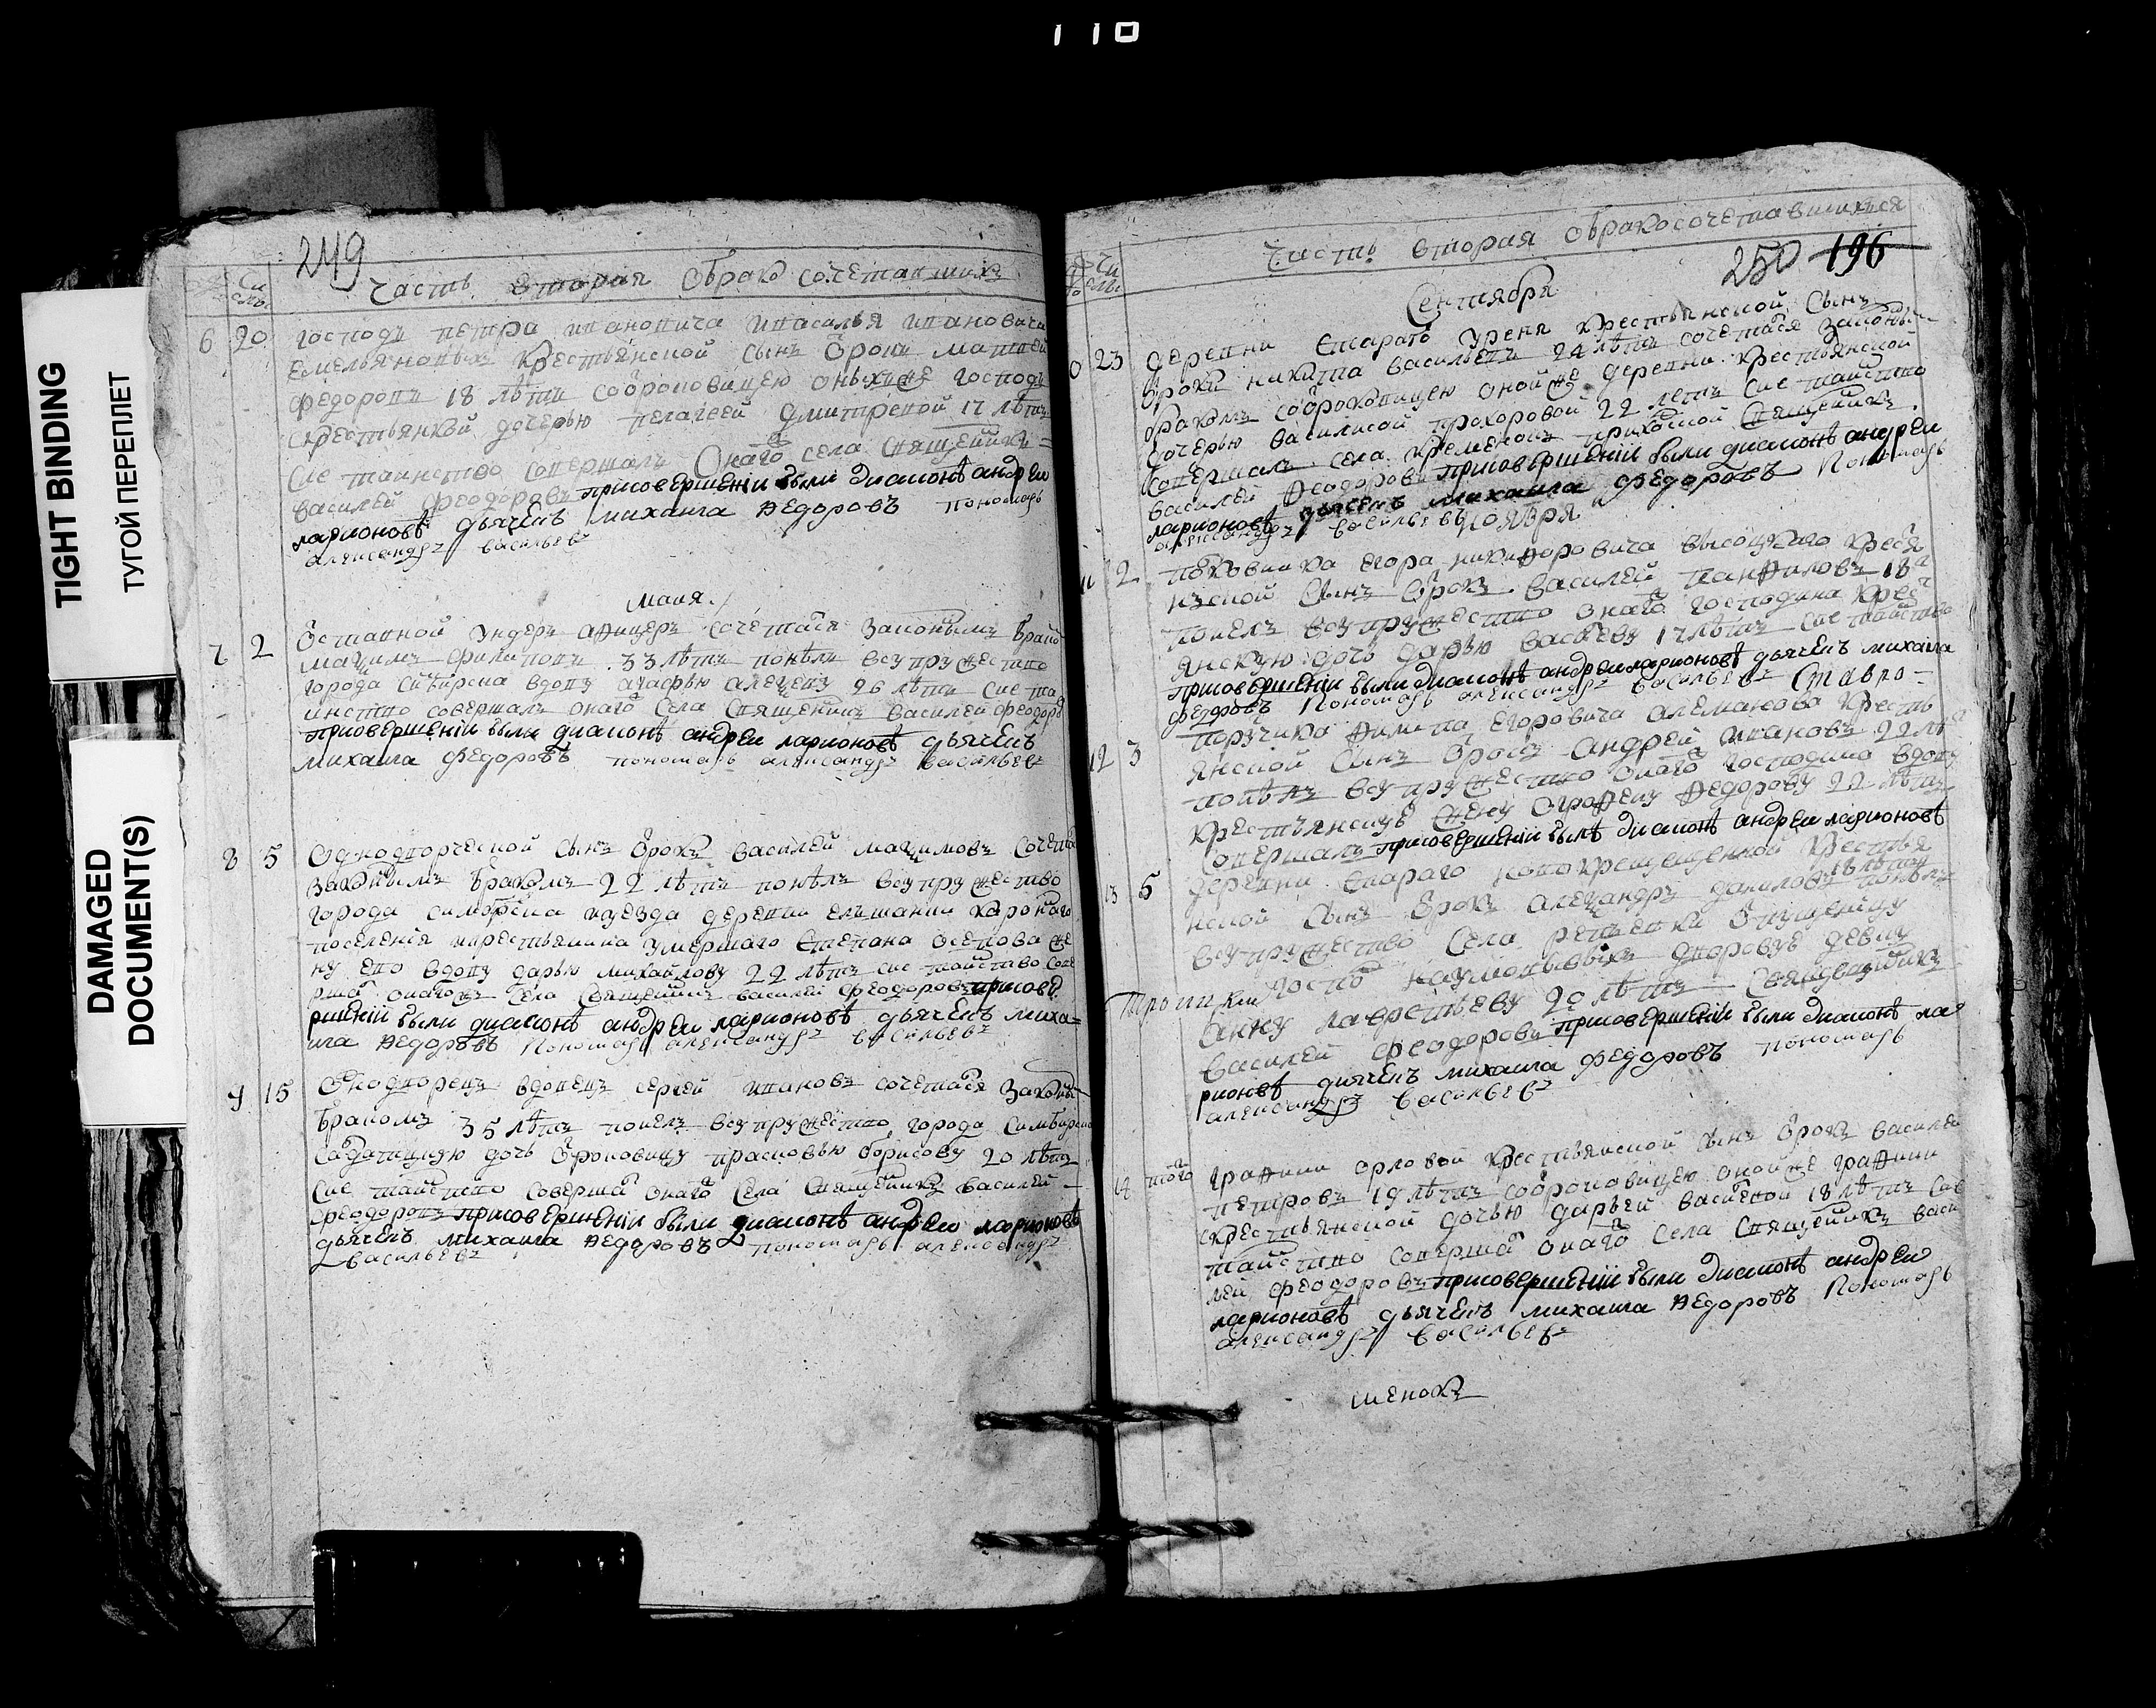 110
TIGHT BINDING
ТУГОЙ ПЕРЕПЛЕТ
DAMAGED
DOCUMENT(S)
249
Часть вторая о брако сочетавшихъ
6 20 господъ петра ивановича ивасилья ивановича
емельяновыхъ крестьянской сынъ отрокъ матвей
федоровъ 18 летъ соотроковицею оныхже господъ
скрестьянкой дочерью пелагеей дмитревой 17 летъ
сие таинство совершалъ онаго села священникъ
василей феодоровъ присовершении были диаконъ андреи
ларионовъ дьячекъ михаила федоровъ пономарь
александръ васильевъ
маия
7 2 Оставной ундеръ афицеръ сочетася законнымъ брако
максимъ филиповъ 33 летъ понялъ всупружество
города вдову 26 летъ сие та
инство совершалъ онаго села священникъ василей феодоровъ
присовершении были диаконъ андреи ларионовъ дьячекъ
михаила федоровъ пономарь александръ васильевъ
8 5 Однодворческой сынъ отрокъ василей максимовъ сочета
законнымъ бракомъ 22 летъ понялъ всупружество
города симбирска уезда деревни елшанки
поселения крестьянина умершаго степана осепова же
ну ево вдову дарью михайлову 22 летъ сие таинство сове
рша онагожъ села священникъ василей феодоровъ присове
ршении были диаконъ андреи ларионовъ дьячекъ миха=
ила федоровъ пономарь александръ васильевъ
9 15 Однодворецъ вдовецъ сергей ивановъ сочетася законны
бракомъ 35 летъ понелъ всупружество города симбирска
салдатцкую дочь отроковицу прасковью борисову 20 летъ
сие таинство соверша онаго села священникъ василей
феодоровъ присовершении были диаконъ андреи ларионовъ
дьячекъ михаила федоровъ пономарь александръ
васильевъ
Часть вторая о бракосочетавшихся
250 196
Сентября
23 деревни старато уреня крестьянской сынъ
отрокъ никита васильевъ 24 летъ сочетася законны
бракомъ соотроковицею оной же деревни крестьянской
дочерью василисой прохоровой 22 летъ сие таинство
совершалъ села кременокъ приходской священникъ
василей феодоровъ присовершении были диаконъ андреи
ларионовъ дьячекъ михаила федоровъ пономарь
александръ васильевъ
ноября
11 2 полковника егора никифоровича высоцкаго крестья
нской сынъ отрокъ василей панфиловъ 18
понелъ всупружество онаго господина крес
янскую дочь дарью васильеву 17 летъ сие таинство
присовершении были диаконъ андреи ларионовъ дьячекъ михаила
федоровъ пономарь александръ васильевъ
12 3 поручика филипа егоровича алемасова кресть
янской сынъ отрокъ андрей ивановъ 22 ле
понялъ всупружество онаго господина вдову
крестьянскую жену федорову 22 летъ
совершалъ присовершении былъ диаконъ андреи ларионовъ
13 5 деревни стараго новокрещенной крестья
нской сынъ отрокъ александръ даниловъ 18 летъ понялъ
всупружество села репьевки
госпо наумовыхъ дворовую девку
анну лаврентьеву 20 летъ священникъ
василей феодоровъ присовершении были диаконъ ла
рионовъ дьячекъ михаила федоровъ пономарь
александръ васильевъ
14 того графини орловой крестьянской сынъ отрокъ василей
петровъ 19 летъ соотроковицею оной же графини
скрестьянской дочью дарьей васильевой 18 летъ сие
таинство соверша онаго села священникъ васи
лей феодоровъ присовершении были диаконъ андреи
ларионовъ дьячекъ михаила федоровъ пономарь
александръ васильевъ